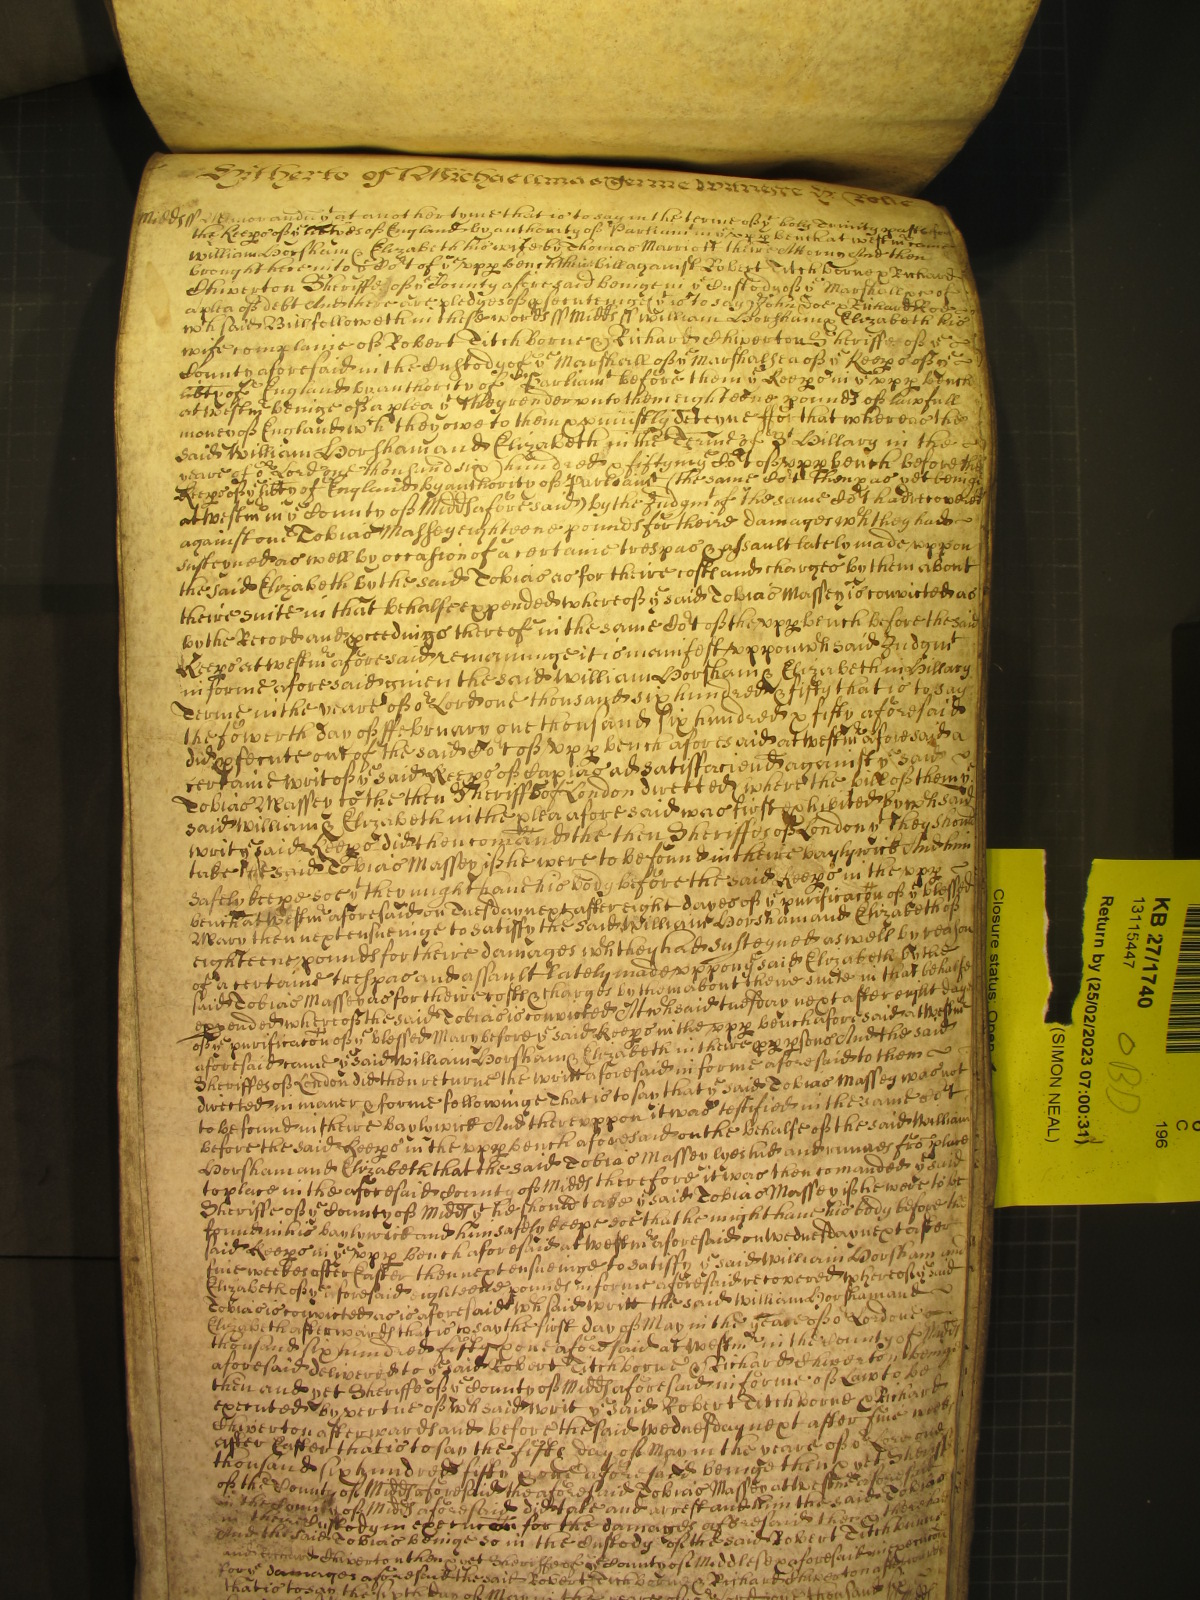 Hitherto of Michaellmas Terme Wittnesse H Rolle
Midds ss Memorandu yt at another tyme that is to say in the terme of ye holy Trinity last past before
the Keeps of ye Libtyes of England by authority of Parliamt in ye upp bench at westm came
William Horsham & Elizabeth his wife by Thomas Marriott theire Attorny And then
brought here into ye Cort of ye upp bench theire bill against Robert Titchborne & Richard
Chiverton Sheriffes of ye County aforesaid beinge in ye Custody of ye Marshall &c of
a plea of debt And there are pledges of prosecutinge yt is to say John Doe & Richard Roe
wh said Bill followeth in these words ss Midds ss William Horsham & Elizabeth his
wife complaine of Robert Titchborne & Richard Chiverton Sheriffes of ye
County aforesaid in the Custody of ye Marshall of ye Marshalsea of ye Keeps of ye
libty of England by authority of Parliamt before them ye Keeps in ye upp bench
at westm beinge of a plea yt they render unto them eighteene pounds of lawfull
money of England wh they owe to them & uniustly deteyne ffor that whereas the
said William Horsham and Elizabeth in the Terme of St Hillary in the
yeare of or Lord one thousand six hundred & fifty in ye Cort of upp bench before the
Keeps of ye libty of England by authority of Parliamt (the same Cort then & as yet beinge
at westm in ye County of Midds aforesaid) by the Judgmt of the same Cort had recovered
against one Tobias Massey eighteene pounds for theire damages wh they had
susteyned as well by occasion of a certaine trespas & assault lately made uppon
the said Elizabeth by the said Tobias as for theire costs and charges by them about
theire suite in that behalfe expended whereof ye said Tobias Massey is convicted as
by the Record and pceedings thereof in the same Cort of the upp bench before the said
Keeps at westm aforesaid remaininge it is manifest uppon wh said Judgmt
in forme aforesaid given the said William Horsham & Elizabeth in Hillary
Terme in the yeare of or Lord one thousand six hundred & fifty that is to say
the fowerth day of ffebruary one thousand six hundred & fifty aforesaid
did psecute out of the said Cort of upp bench aforesaid at westm aforesaid a
certaine writ of ye said Keeps of Capias ad satisfaciend against ye said
Tobias Massey to the then Sheriffs of London directed (where the bill of them ye
said William & Elizabeth in the plea aforesaid was first exhibited) by wh said
writ ye said Keeps did then comand the then Sheriffes of London yt they should
take the said Tobias Massey if he were to be found in theire baylywick And him
safely keepe soe yt they might have his body before the said Keeps in the upp
bench at westm aforesaid on Tuesday next after eight dayes of ye purificacon of ye blessed
Mary then next ensueinge to satisfy the said William Horsham and Elizabeth of
eighteene pounds for theire damages wh they had susteyned as well by reason
of a certaine trespas and assault lately made uppon ye said Elizabeth by the
said Tobias Massey as for theire costs & charges by them about theire suite in that behalfe
expended whereof the said Tobias is convicted At wh said tuesday next after eight dayes
of ye purificacon of ye blessed Mary before ye said Keeps in the upp bench aforesaid at westm
aforesaid came ye said William Horsham & Elizabeth in theire pp psons And the said
Sheriffes of London did then returne the writt aforesaid in forme aforesaid to them
directed in maner & forme followinge That is to say that ye said Tobias Massey was not
to be found in theire baylywick And thereuppon it was testified in the same Cort
before the said Keeps in the upp bench aforesaid on the behalfe of the said William
Horsham and Elizabeth that the said Tobias Massey lyes hid and runnes fro place
to place in the aforesaid County of Midds therefore it was then comanded ye said
Sheriffe of ye County of Midds yt he should take ye said Tobias Massey if he were to be
found in his baylywick and him safely keepe soe that he might have his body before the
said Keeps in ye upp bench aforesaid at westm aforesaid on wednesday next after
five weekes after Easter then next ensueinge to satisfy ye said William Horsham and
Elizabeth of ye aforesaid eighteene pounds in forme aforesaid recovered whereof ye said
Tobias is convicted as is aforesaid wh said writt the said William Horsham and
Elizabeth afterwards that is to say the first day of May in the yeare of or Lord one
thousand six hundred fifty & one aforesaid at westm in the County of Midds
aforesaid delivered to ye said Robert Titchborne & Richard Chiverton beinge
then and yet Sheriffe of ye County of Midds aforesaid in forme of Law to be
executed by vertue of wh said writ ye said Robert Titchborne & Richard
Chiverton afterwards and before the said wednesday next after five weeks
after Easter that is to say the fifth day of May in the yeare of or Lord one
thousand six hundred fifty & one aforesaid beinge then & yet Sheriffe
of the County of Midds aforesaid the aforesaid Tobias Massey at westm aforesaid
in the County of Midds aforesaid did take and arrest and him the said Tobias
in theire Custody in execucon for the damages aforesaid then & there had
And the said Tobias beinge so in the Custody of the said Robert Titchburne
and Richard Chiverton then & yet Sheriffe of ye County of Middlesex aforesaid in execucon
for ye damages aforesaid the said Robert Titchborne & Richard Chiverton afterwards
that is to say the sixth day of May in the yeare of or Lord one thousand six hundred
KB 27/1740
13115447
Return by (25/02/2023 07:00:31)
(SIMON NEAL)
Closure status: Open
C
196
OBD